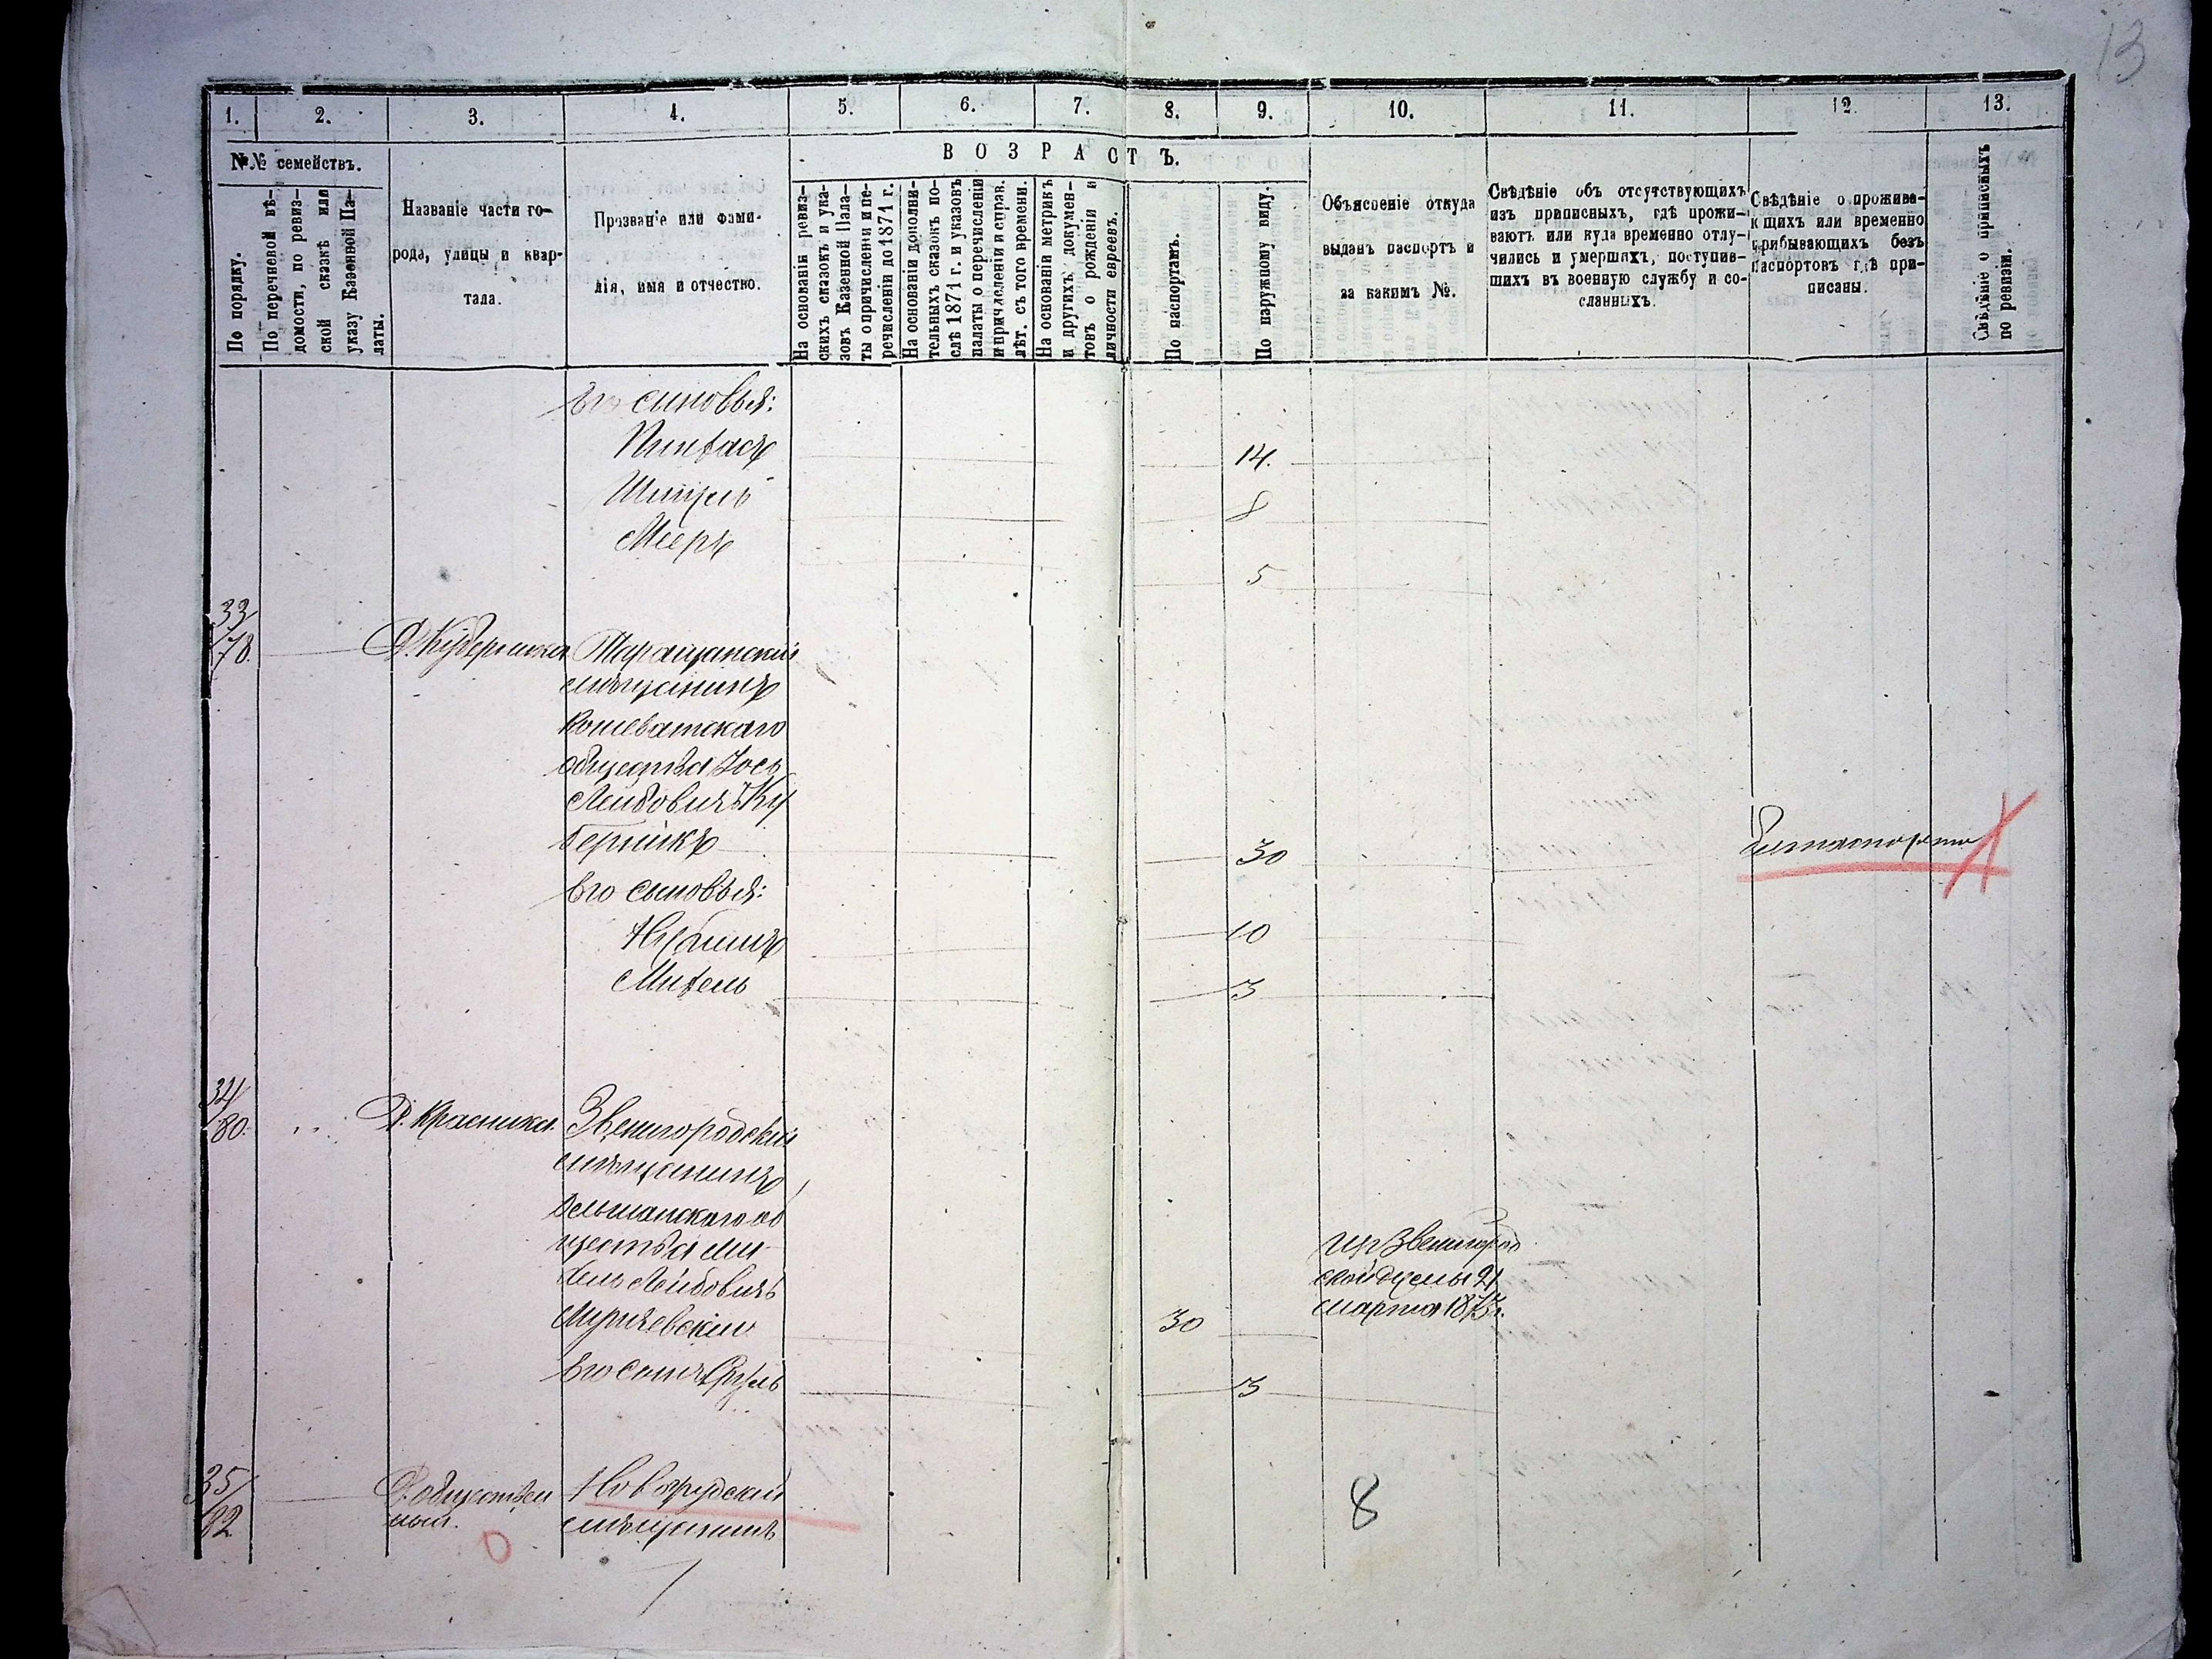 13
1. 2. 3. 4. 5. 6. 7. 8. 9. 10. 11. 12. 13.
№№ семействъ.
ВОЗРАСТЪ.
По порядку.
По перечневой вѣ-
домости, по ревиз-
ской сказкѣ или
указу Казенной Па-
латы.
Названіе части го-
рода, улицы и квар-
тала.
Прозваніе или фами-
лія, имя и отчество.
На основаніи ревиз-
скихъ сказокъ и ука-
зовъ Казенной Пала-
ты о причисленіи и пе-
речисленіи до 1871 г.
На основаніи дополни-
тельныхъ сказокъ по-
слѣ 1871 г. и указовъ
палаты о перечисленіи
и причисленіи и справ.
лѣт. съ того времени.
На основаніи метрикъ
и другихъ докумен-
товъ о рожденіи и
личности евреевъ.
По паспортамъ.
По наружному виду.
Объясненіе откуда
выданъ паспортъ и
за какимъ №.
Свѣдѣніе объ отсутствующихъ
изъ приписныхъ, гдѣ прожи-
ваютъ или куда временно отлу-
чились и умершихъ, поступив-
шихъ въ военную службу и со-
сланныхъ.
Свѣдѣніе о прожива-
ющихъ или временно
прибывающихъ безъ
паспортовъ гдѣ при-
писаны.
Свѣдѣніе о приписныхъ
по ревизіи.
Его сыновья:
Пинхасъ 14.
8
Мееръ
5
33/78. Д. Куберника Таращанскій
мѣщанинъ
Кошеватскаго
общества Іось
Лейбовичъ Ку
берникъ 30 Безъ паспорта
Его сыновья:
10
Михель 3
34/80. Д. Красника Звенигородскій
мѣщанинъ
Ольшанскаго об
щества Ми
хель Лейбовичъ
30
изъ Звенигород
ской думы 21
марта 1873 г.
Его сынъ 3
35/82 Д. обществен
ный. Новогрудскій
мѣщанинъ
8